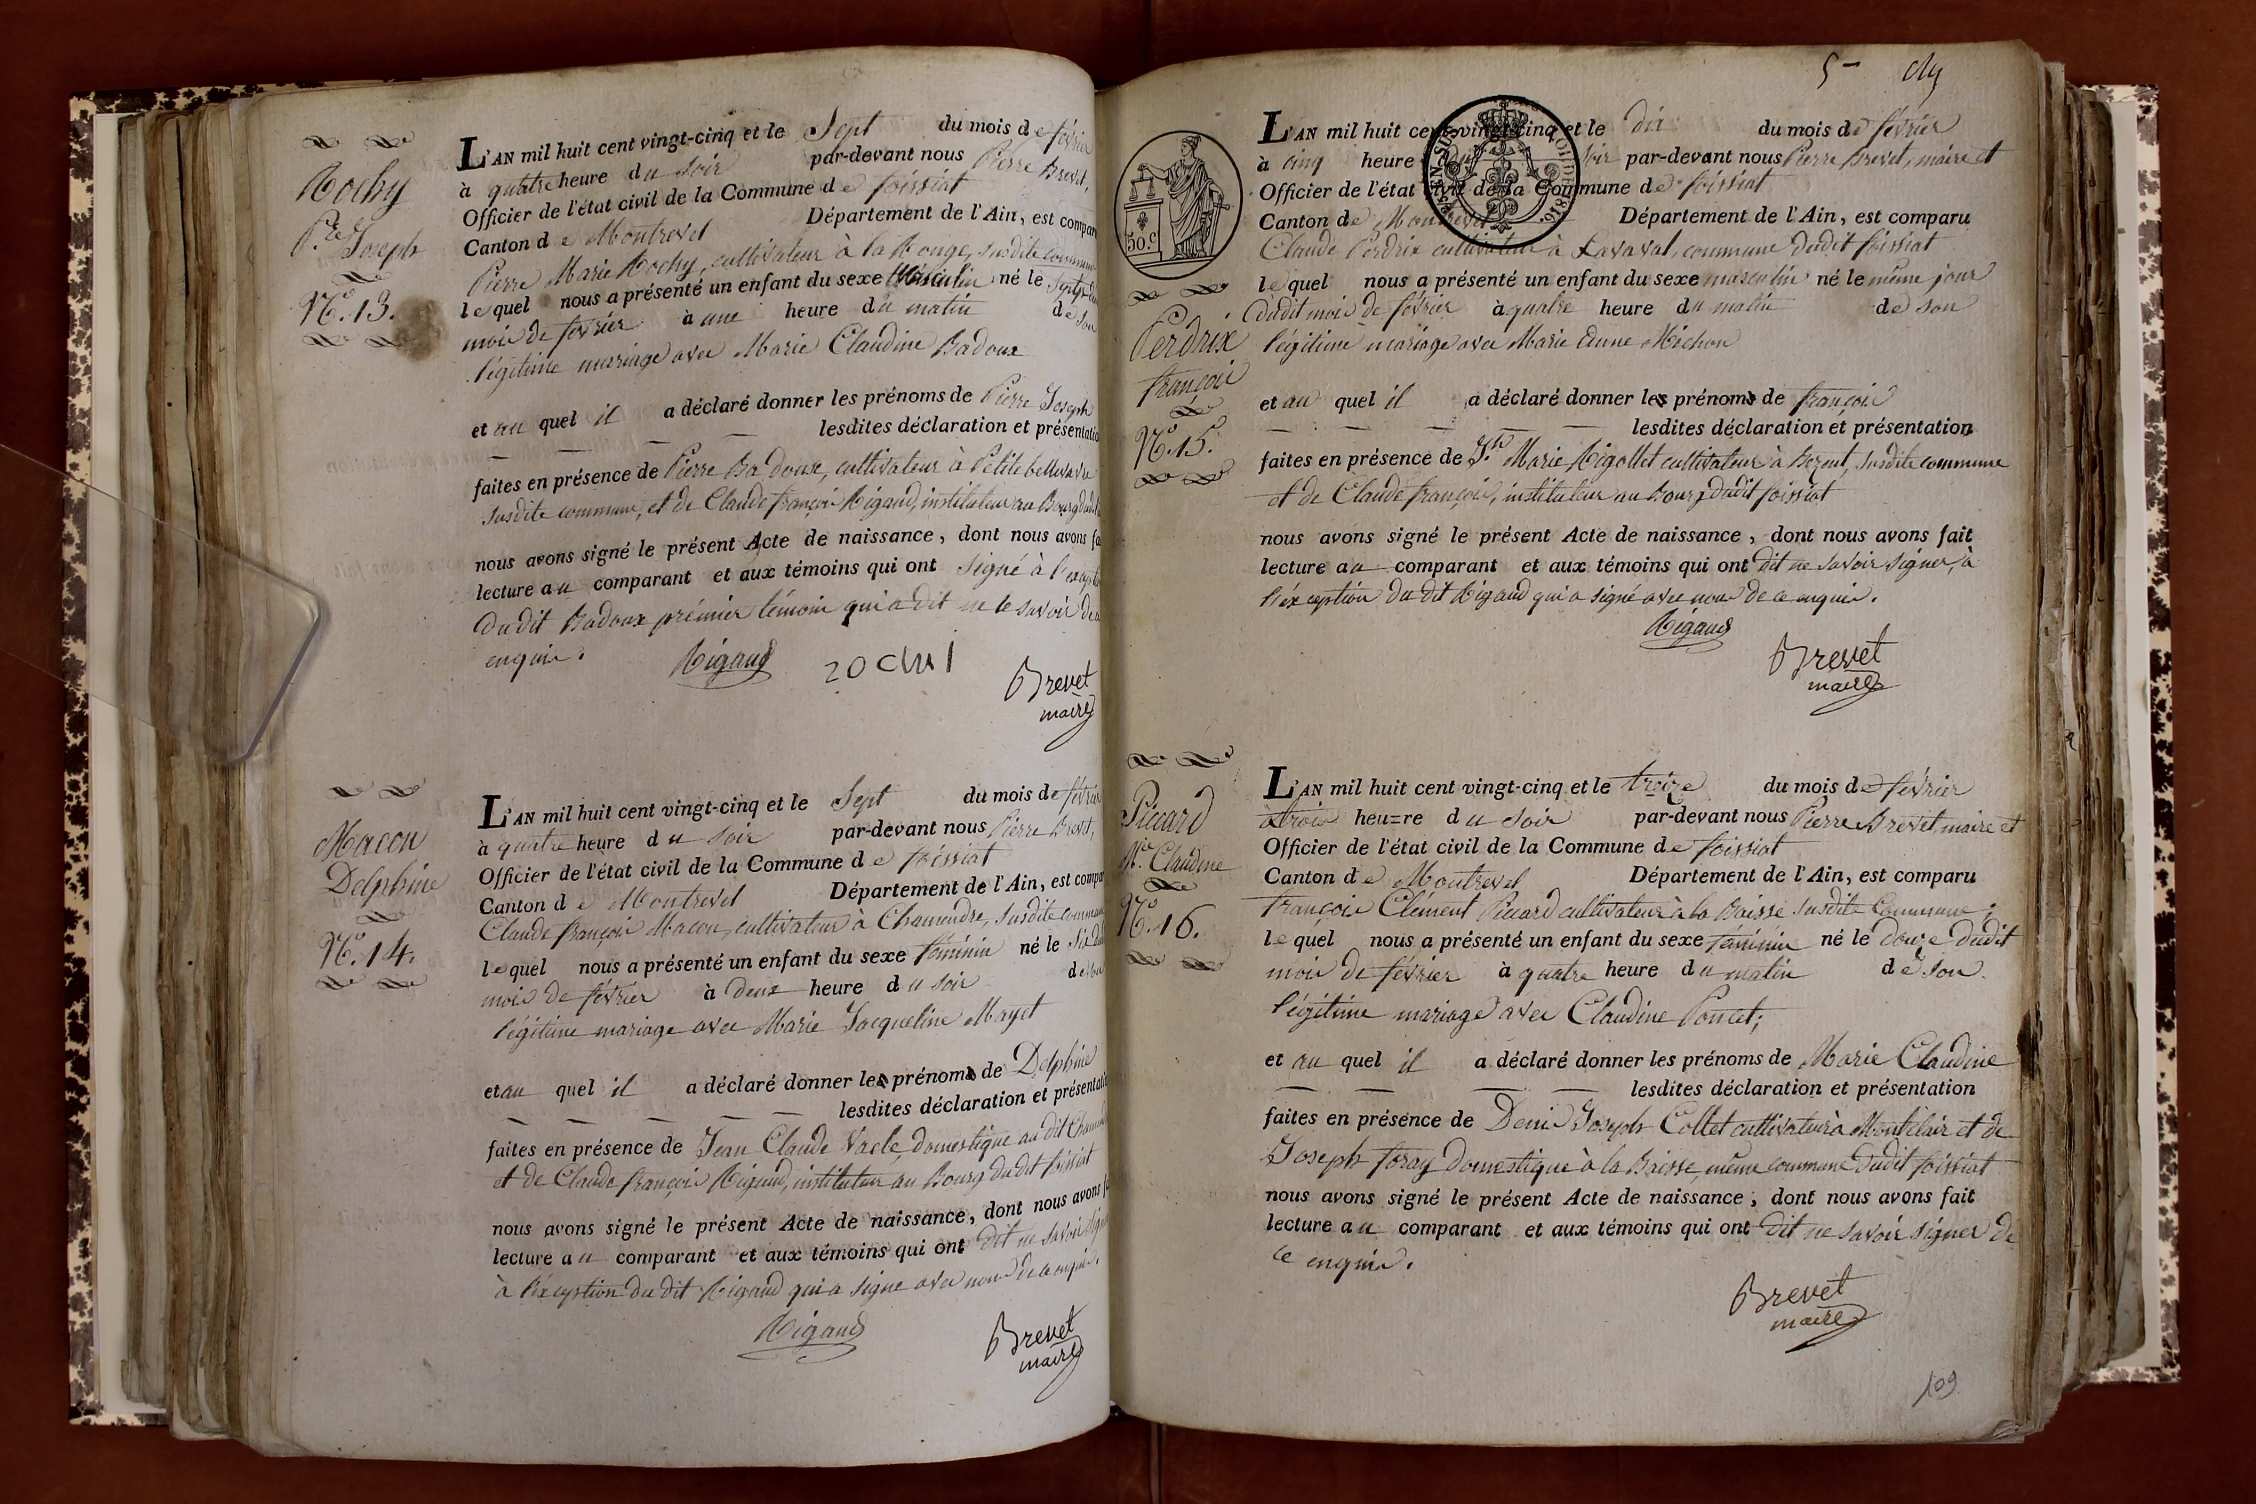 Rochy
P.re Joseph
N.o 13.
L'AN mil huit cent vingt-cinq et le Sept du mois de février
à quatre heure du soir par-devant nous Pierre Brevet,
Officier de l'état civil de la Commune de foissiat
Canton de Montrevel Département de l'Ain, est compar
Pierre Marie Rochy, cultivateur à la Ronge, susdite commune
lequel nous a présenté un enfant du sexe Masculin né le Sept du
mois de février à une heure du matin de son
légitime mariage avec Marie Claudine Badoux
et au quel il a déclaré donner les prénoms de Pierre Joseph
lesdites déclaration et présentatio
faites en présence de Pierre Badoux, cultivateur à Petite
susdite commune, et de Claude françois Rigaud, instituteur au Bourg dudit
nous avons signé le présent Acte de naissance, dont nous avons fa
lecture au comparant et aux témoins qui ont signé à l'excepti
du dit Badoux prémier témoin qui a dit ne le savoir de
enquis.
Rigaud
Brevet
maire
Macon
Delphine
N.o 14.
L'AN mil huit cent vingt-cinq et le Sept du mois de février
à quatre heure du soir par-devant nous Pierre Brevet,
Officier de l'état civil de la Commune de foissiat
Canton de Montrevel Département de l'Ain, est compar
Claude françois Macon, cultivateur à Chamandre, susdite commune
lequel nous a présenté un enfant du sexe féminin né le Six du
mois de février à deux heure du soir de son
légitime mariage avec Marie Jacqueline Mayet
et au quel il a déclaré donner les prénoms de Delphine
lesdites déclaration et présentati
faites en présence de Jean Claude Vacle domestique au dit
et de Claude françois Rigaud, instituteur au Bourg dudit foissiat
nous avons signé le présent Acte de naissance, dont nous avons f
lecture au comparant et aux témoins qui ont dit ne savoir signer
à l'éxception du dit Rigaud qui a signé avec nous de ce enquis.
Rigaud
Brevet
maire
5
50.c
Perdrix
françois
N.o 15.
L'AN mil huit cent vingt-cinq et le dix du mois de février
à cinq heure du soir par-devant nous Pierre Brevet, maire et
Officier de l'état civil de la Commune de foissiat
Canton de Montrevel Département de l'Ain, est comparu
Claude Perdrix cultivateur à Lavaval, commune dudit foissiat
lequel nous a présenté un enfant du sexe masculin né le même jour
dudit mois de février à quatre heure du matin de son
légitime mariage avec Marie Anne Michon
et au quel il a déclaré donner les prénoms de françois
lesdites déclaration et présentation
faites en présence de J.h Marie Rigollet cultivateur à susdite commune
et de Claude françois, instituteur au Bourg dudit foissiat
nous avons signé le présent Acte de naissance, dont nous avons fait
lecture au comparant et aux témoins qui ont dit ne savoir signer, à
l'éxception du dit Rigaud qui a signé avec nous de ce enquis.
Rigaud
Brevet
maire
Piccard
M.ie Claudine
N.o 16.
L'AN mil huit cent vingt-cinq et le treize du mois de février
à trois heu=re du soir par-devant nous Pierre Brevet, maire et
Officier de l'état civil de la Commune de foissiat
Canton de Montrevel Département de l'Ain, est comparu
françois Clément Piccard cultivateur à la Baisse susdite Commune;
lequel nous a présenté un enfant du sexe féminin né le douze dudit
mois de février à quatre heure du matin de son
légitime mariage avec Claudine Poncet;
et au quel il a déclaré donner les prénoms de Marie Claudine
lesdites déclaration et présentation
faites en présence de Denis Joseph Collet cultivateur à Montclair et de
Joseph foray domestique à la Baisse, même commune dudit foissiat
nous avons signé le présent Acte de naissance, dont nous avons fait
lecture au comparant et aux témoins qui ont dit ne savoir signer de
ce enquis.
Brevet
maire
109